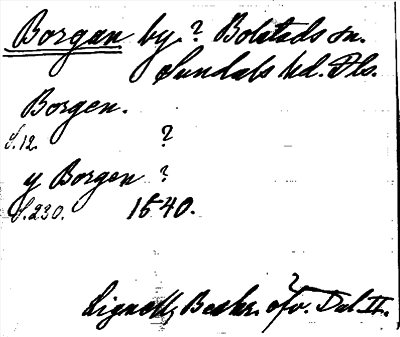 Borgan by? Bolstads sn.
Sundals hd. Dls.
Borgen.
S.12. ?
y Borgen ?
S.230. 1540.
Lignell, Beskr. öfv. Dal II.